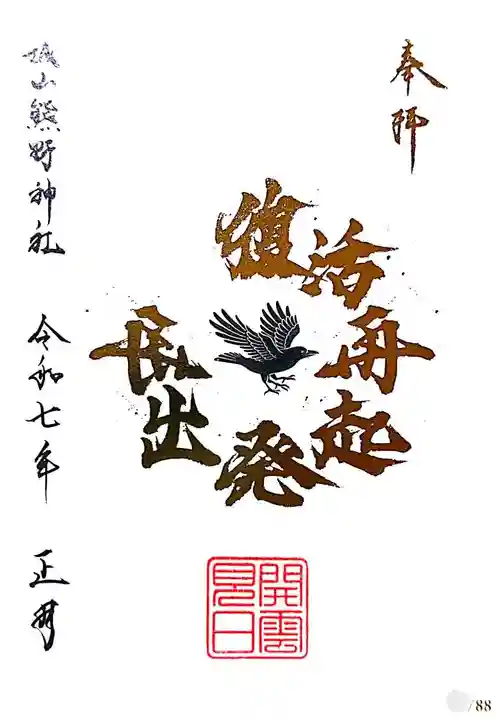 奉拝
復活
再起
発
出
長
城山熊野神社
令和七年 正月
開雲
見日
/88